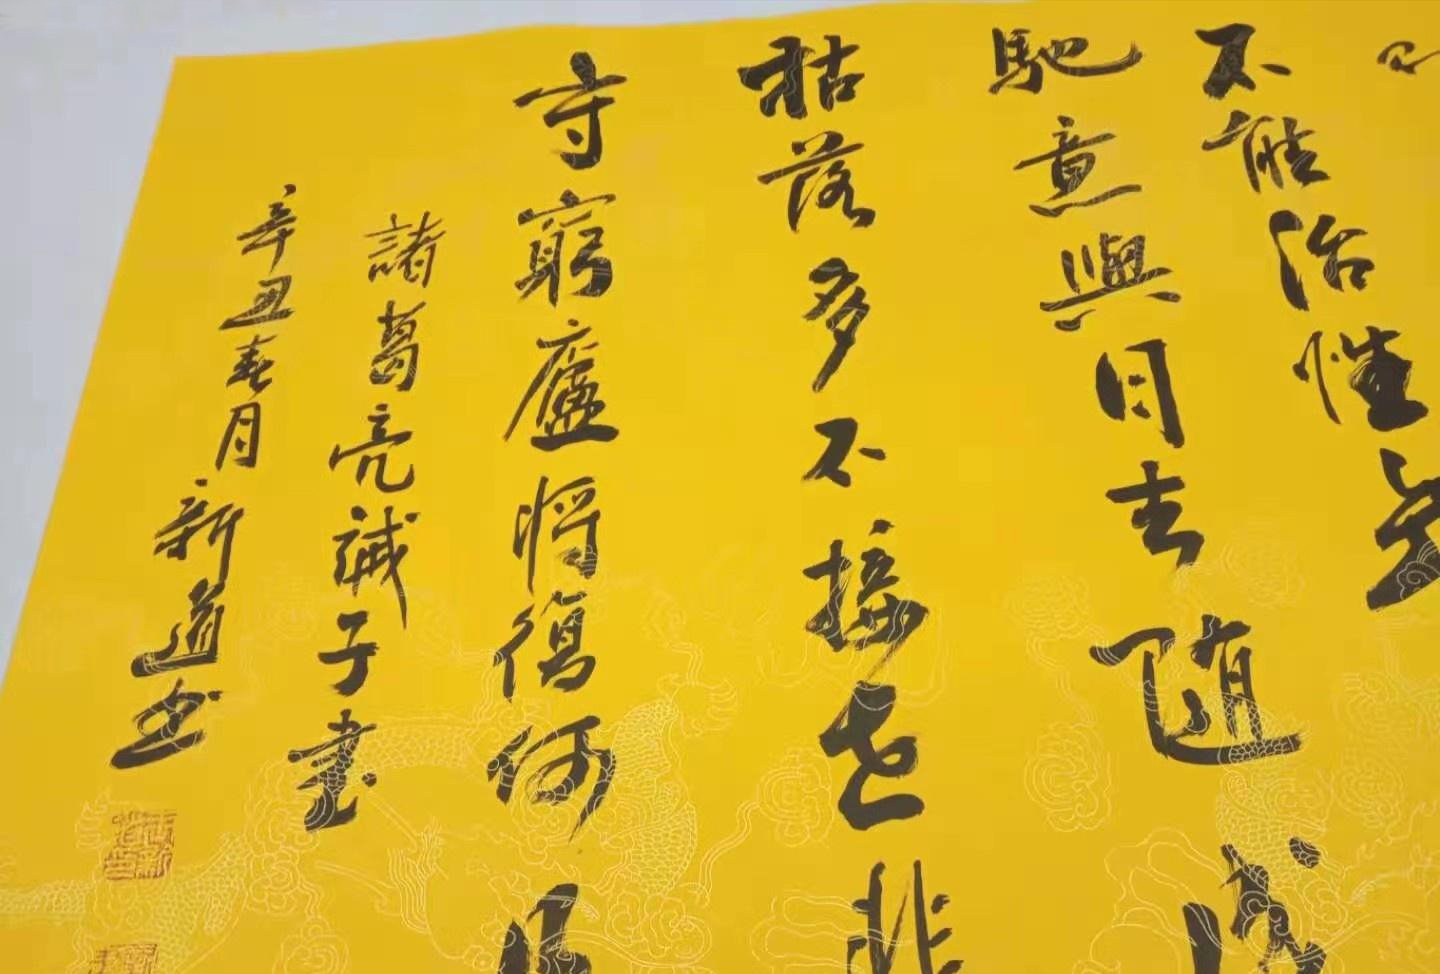 不能治性年
馳意與日去随成
枯落多不接世
守窮廬將復何
諸葛亮誡子書
辛丑春月新道书